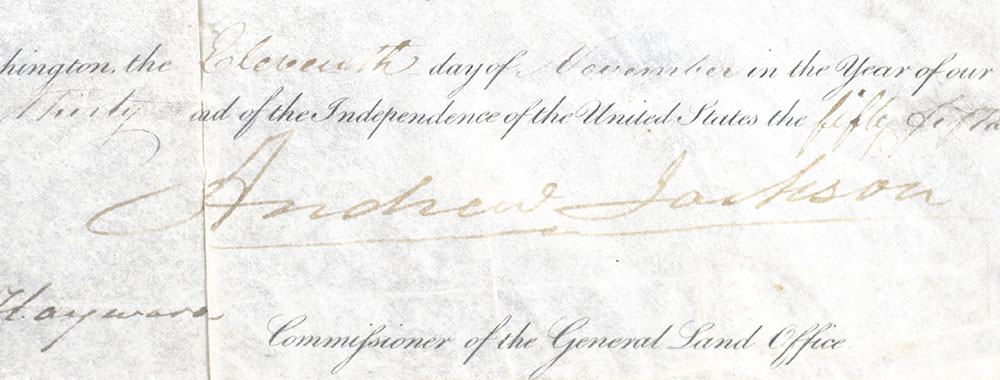 hington, the Eleventh day of November in the Year of our
Thirty and of the Independence of the United States the fifty fifth
Andrew Jackson
Hayward
Commiſsioner of the General Land Office